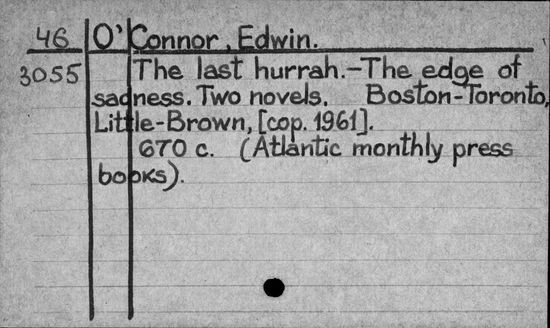 46 O'Connor, Edwin.
3055 The last hurrah.-The edge of
sadness. Two novels. Boston-Toronto,
Little-Brown, [cop. 1961].
670 c. (Atlantic monthly press
books).